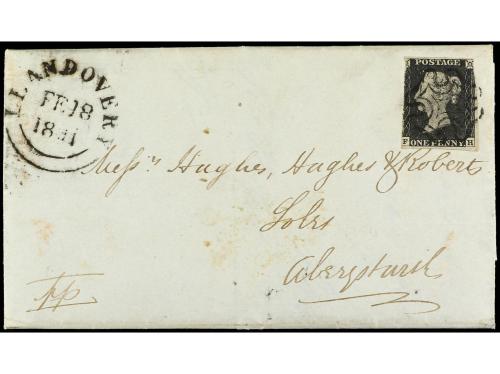 LLANDOVERY
FE 18
1841
POSTAGE
F ONE PENNY. H
Messrs Hughes, Hughes & Roberts
Solrs
Aberystwith
pp